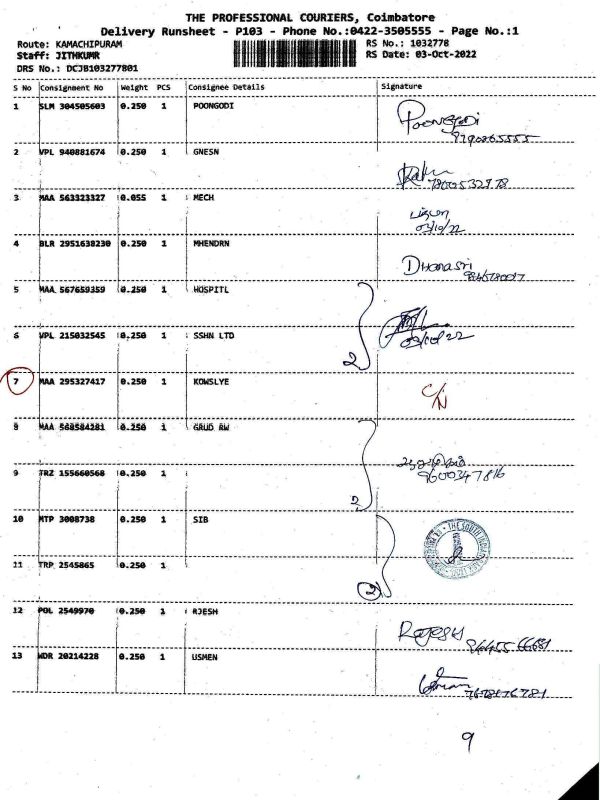 THE PROFESSIONAL COURIERS, Coimbatore
Delivery Runsheet - P103 - Phone No.:0422-3505555 - Page No.:1
Route: KAMACHIPURAM RS No.: 1032778
Staff: JITHKUMR RS Date: 03-Oct-2022
DRS No.: DCJB103277801
S No Consignment No Weight PCS Consignee Details Signature
1 SLM 304505603 0.250 1 POONGODI Poongodi
2 VPL 940881674 0.250 1 GNESN
7800532978
3 MAA 563323327 0.055 1 MECH
03/10/22
4 BLR 2951638230 0.250 1 MHENDRN Dhanasri
5 MAA 567659359 0.250 1 HOSPITL
6 VPL 215032545 0.250 1 SSHN LTD
2
7 MAA 295327417 0.250 1 KOWSLYE C/N
8 MAA 568584281 0.250 1 GRUD RW
9 TRZ 155660568 0.250 1
9600347816
2
10 MTP 3008738 0.250 1 SIB
11 TRP 2545865 0.250 1
2
12 POL 2549970 0.250 1 RJESH Rajesh
13 WDR 20214228 0.250 1 USMEN
9